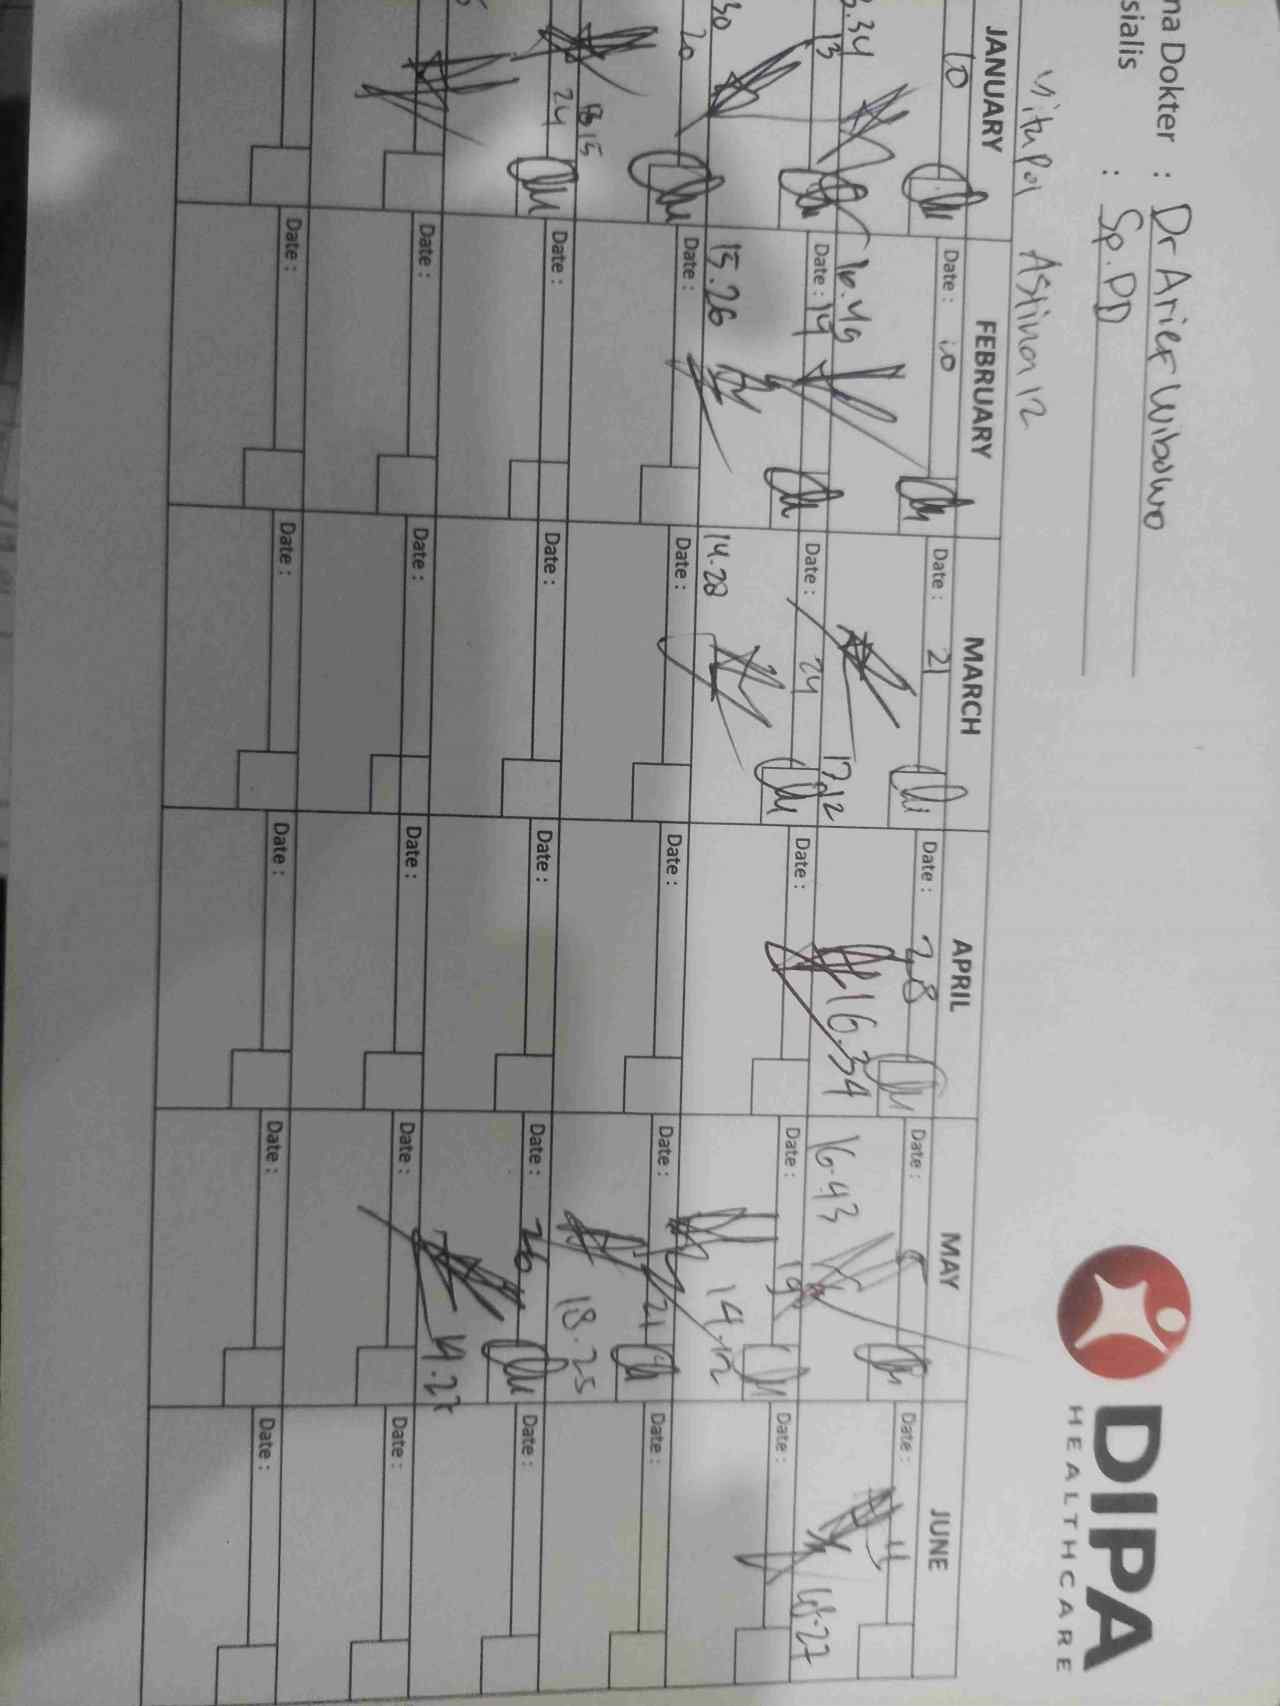 na Dokter : Dr Arief Wibowo
sialis : Sp.PD
DIPA
HEALTHCARE
Vitupol Astina 12
JANUARY FEBRUARY MARCH APRIL MAY JUNE
10 Date : 10 Date : 21 Date : 28 Date : 5 Date : 4
.34 16.49 17.12 16.34 16.43
13 Date : 14 Date : 24 Date : Date : 19 Date :
30 15.26 14.28 14.12
20 Date : Date : Date : Date : 21 Date :
15 18.25
24 Date : Date : Date : Date : 26 Date :
14.27
Date : Date : Date : Date : Date :
Date : Date : Date : Date : Date :